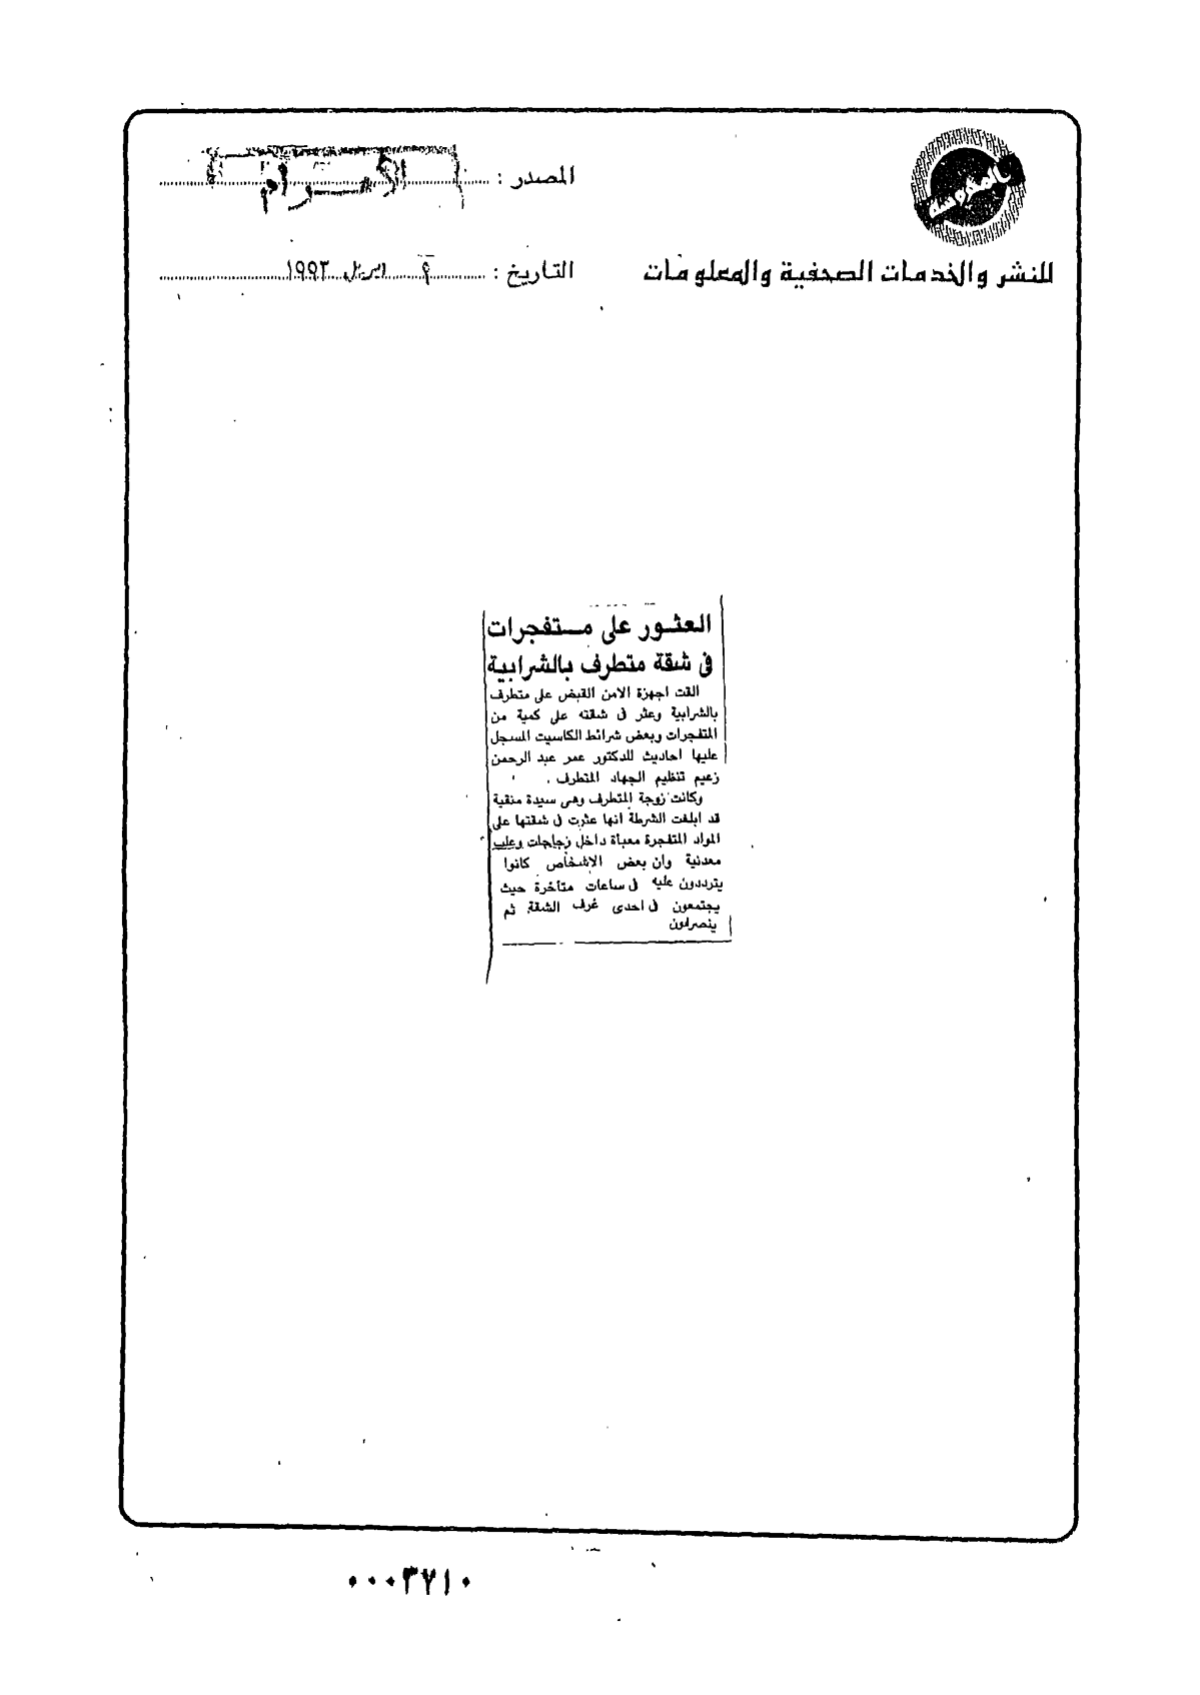 المصدر : الأهرام
للنشر والخدمات الصحفية والمعلومات
التاريخ : ٩ ابريل ١٩٩٣
العثور على مستفجرات
فى شقة متطرف بالشرابية
القت اجهزة الامن القبض على متطرف
بالشرابية وعثر فى شقته على كمية من
المتفجرات وبعض شرائط الكاسيت المسجل
عليها احاديث للدكتور عمر عبد الرحمن
زعيم تنظيم الجهاد المتطرف .
وكانت زوجة المتطرف وهى سيدة منقبة
قد ابلغت الشرطة انها عثرت فى شقتها على
المواد المتفجرة معبأة داخل زجاجات وعلب
معدنية وان بعض الاشخاص كانوا
يترددون عليه فى ساعات متأخرة حيث
يجتمعون فى احدى غرف الشقة ثم
ينصرفون
٠٠٠٣٧١٠